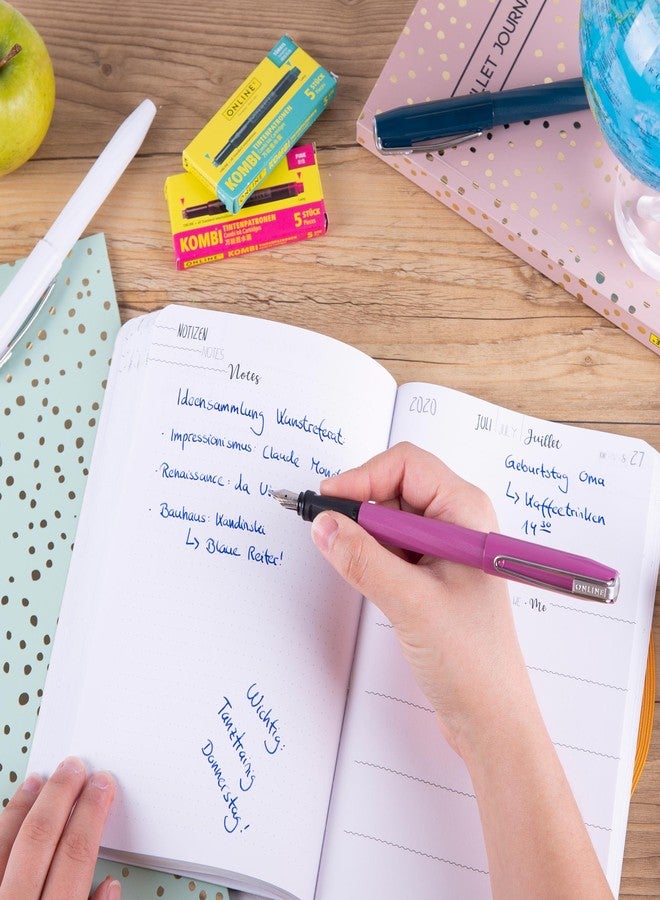 ONLINE
KOMBI
TINTENPATRONEN
5 STÜCK
KOMBI
TINTENPATRONEN
Combi Ink Cartridges
5 STÜCK
Pieces
ONLINE KOMBI
BULLET JOURNAL
NOTIZEN
NOTES
Notes
Ideensammlung Kunstreferat:
· Impressionismus: Claude Monet
· Renaissance: da Vi
· Bauhaus: Kandinski
↳ Blaue Reiter!
Wichtig:
Tanztraining
Donnerstag!
2020
JULI JULY Juillet
27
Geburtstag Oma
↳ Kaffeetrinken
14 30
ONLINE
WE · Me